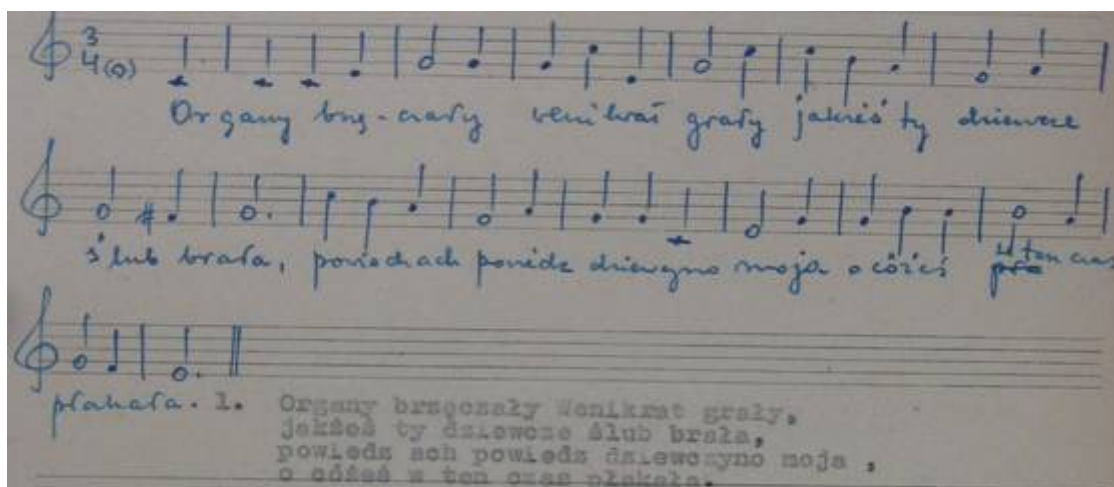 3
4 (0)
Organy brzę-czały veni kraś grały jakżeś ty dziewcze
ślub brała, powiedz ach powiedz dziewczyno moja o cóżeś w ten czas
płakała. 1. Organy brzęczały Wenikrat grały,
jakżeś ty dziewcze ślub brała,
powiedz ach powiedz dziewczyno moja ,
o cóżeś w ten czas płakała.